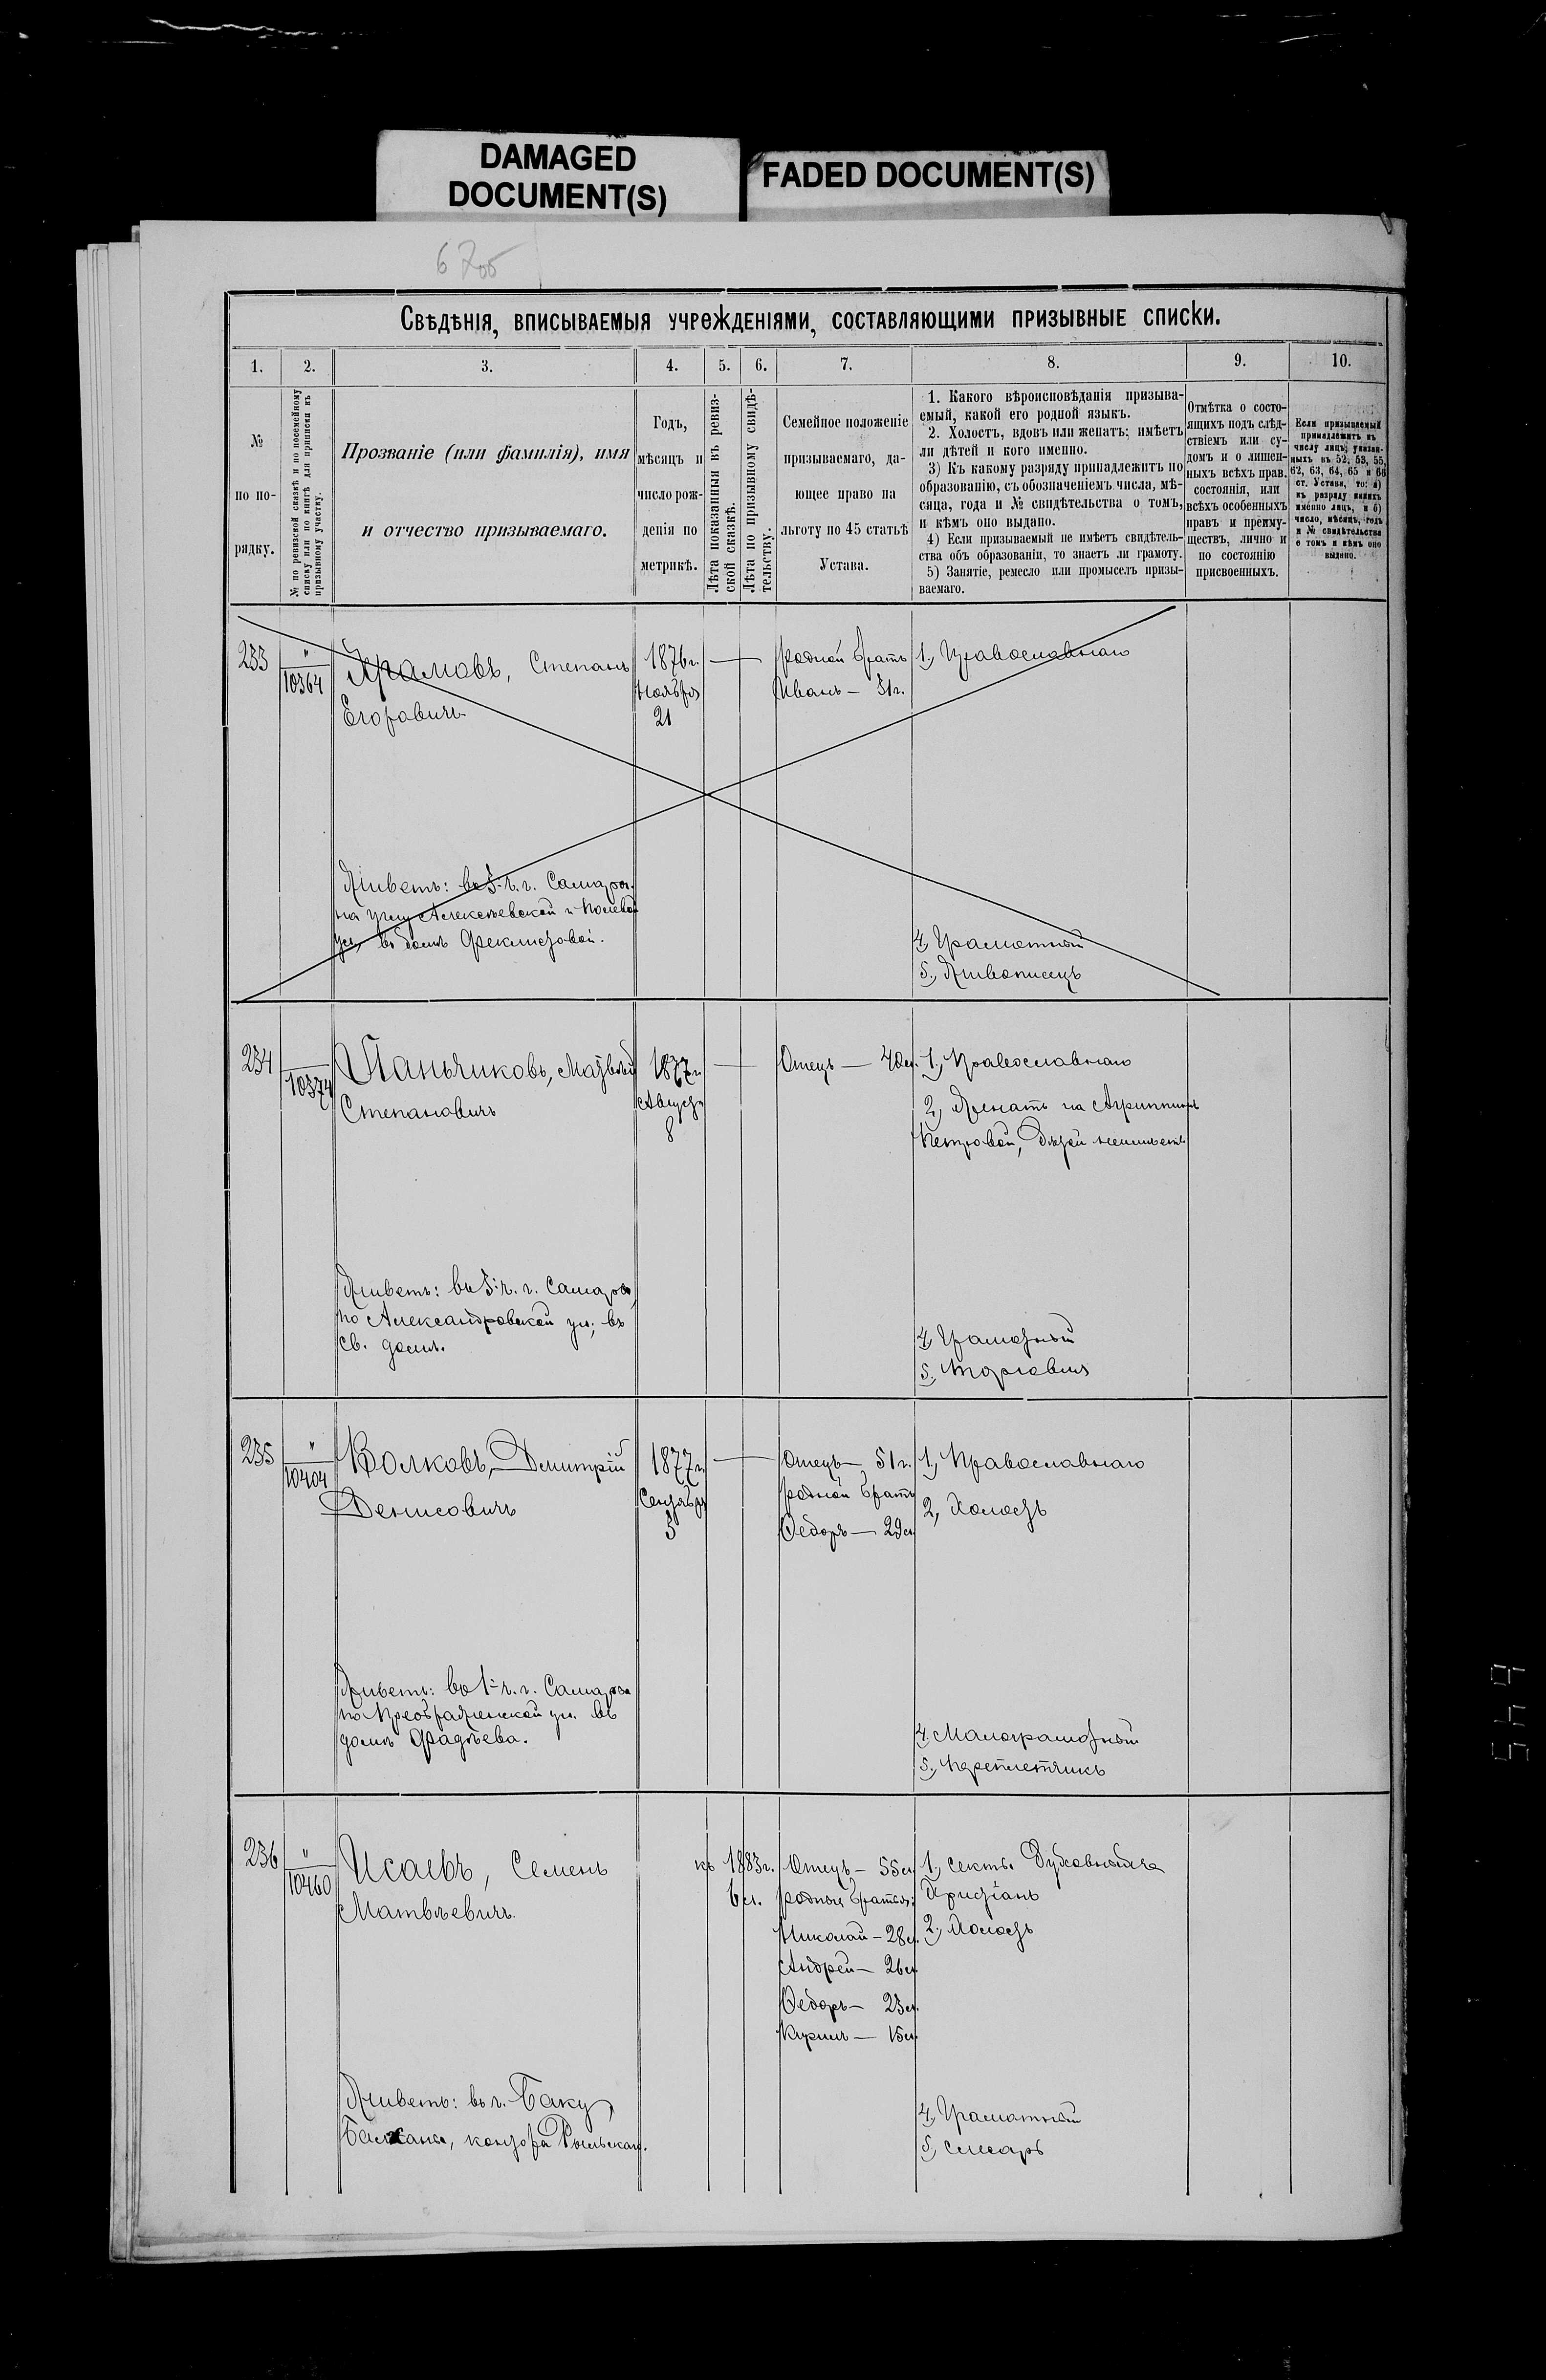 DAMAGED
DOCUMENT(S)
FADED DOCUMENT(S)
Свѣдѣнія, вписываемыя учрежденіями, составляющими призывные списки.
1. 2. 3. 4. 5. 6. 7. 8. 9. 10.
№
по по-
рядку.
№ по ревизской сказкѣ и по посемейному
списку или по книгѣ для приписки къ
призывному участку.
Прозваніе (или фамилія), имя
и отчество призываемаго.
Годъ,
мѣсяцъ и
число рож-
денія по
метрикѣ.
Лѣта показанныя въ ревиз-
ской сказкѣ.
Лѣта по призывному свидѣ-
тельству.
Семейное положеніе
призываемаго, да-
ющее право на
льготу по 45 статьѣ
Устава.
1. Какого вѣроисповѣданія призыва-
емый, какой его родной языкъ.
2. Холостъ, вдовъ или женатъ; имѣетъ
ли дѣтей и кого именно.
3) Къ какому разряду принадлежитъ по
образованію, съ обозначеніемъ числа, мѣ-
сяца, года и № свидѣтельства о томъ,
и кѣмъ оно выдано.
4) Если призываемый не имѣетъ свидѣтель-
ства объ образованіи, то знаетъ ли грамоту.
5) Занятіе, ремесло или промыселъ призы-
ваемаго.
Отмѣтка о состо-
ящихъ подъ слѣд-
ствіемъ или су-
домъ и о лишен-
ныхъ всѣхъ прав.
состоянія, или
всѣхъ особенныхъ
правъ и преиму-
ществъ, лично и
по состоянію
присвоенныхъ.
Если призываемый
принадлежитъ къ
числу лицъ, указан-
ныхъ въ 52, 53, 55,
62, 63, 64, 65 и 66
ст. Устава, то: а)
къ разряду какихъ
именно лицъ, и б)
число, мѣсяцъ, годъ
и № свидѣтельства
о томъ и кѣмъ оно
выдано.
233
"
10364
Храмовъ, Степанъ
Егоровичъ
1876 г.
Ноября
21
родной братъ
Иванъ — 31 г.
1, Православнаго
Живетъ: въ 3-й ч. г. Самары
на углу Алексѣевской и Полевой
ул, въ домѣ Феклистовой.
4, Грамотный
5, Живописецъ
234
10374
Паньчиковъ, Матвѣй
Степановичъ
1877 г.
Августа
8
Отецъ —
1, Православнаго
2, Женатъ на Агриппинѣ
Петровой, дѣтей неимѣетъ
Живетъ: въ 3-й ч. г. Самары
по Александровской ул, въ
св. домѣ.
4, Грамотный
5, торговля
235
"
10404
Волковъ, Димитрій
Денисовичъ
1877 г.
Сентября
5
Отецъ — 51 г.
родной братъ
Федоръ — 29 л.
1, Православнаго
2, Холостъ
Живетъ: въ 1-й ч. г. Самары
по Преображенской ул. въ
домѣ Фадѣева.
4, Малограмотный
5, переплетчикъ
236
"
10460
Исаевъ, Семенъ
Матвѣевичъ.
къ 1883 г.
6 л.
Отецъ — 55 л.
родные братья:
Николай — 28 л.
Андрей — 26 л.
Федоръ — 23 л.
Кирилъ — 15 л.
1, секты Духовныхъ
Христіанъ
2, Холостъ
Живетъ: въ г. Баку,
Балханы, контора Рыльская.
4, Грамотный
5, слесарь